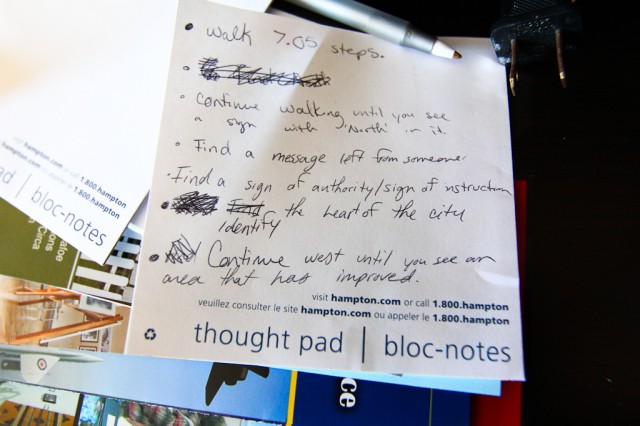 • Walk 7.05 steps.
•
• Continue walking until you see
a sign with 'North' in it.
• Find a message left from someone.
• Find a sign of authority/sign of instruction
• the heart of the city
Identify
• Continue west until you see an
area that has improved.
visit hampton.com or call 1.800.hampton
veuillez consulter le site hampton.com ou appeler le 1.800.hampton
thought pad | bloc-notes
hampton.com or call 1.800.hampton
hampton.com ou appeler le 1.800.hampton
ad | bloc-notes
ons
Circa
ce